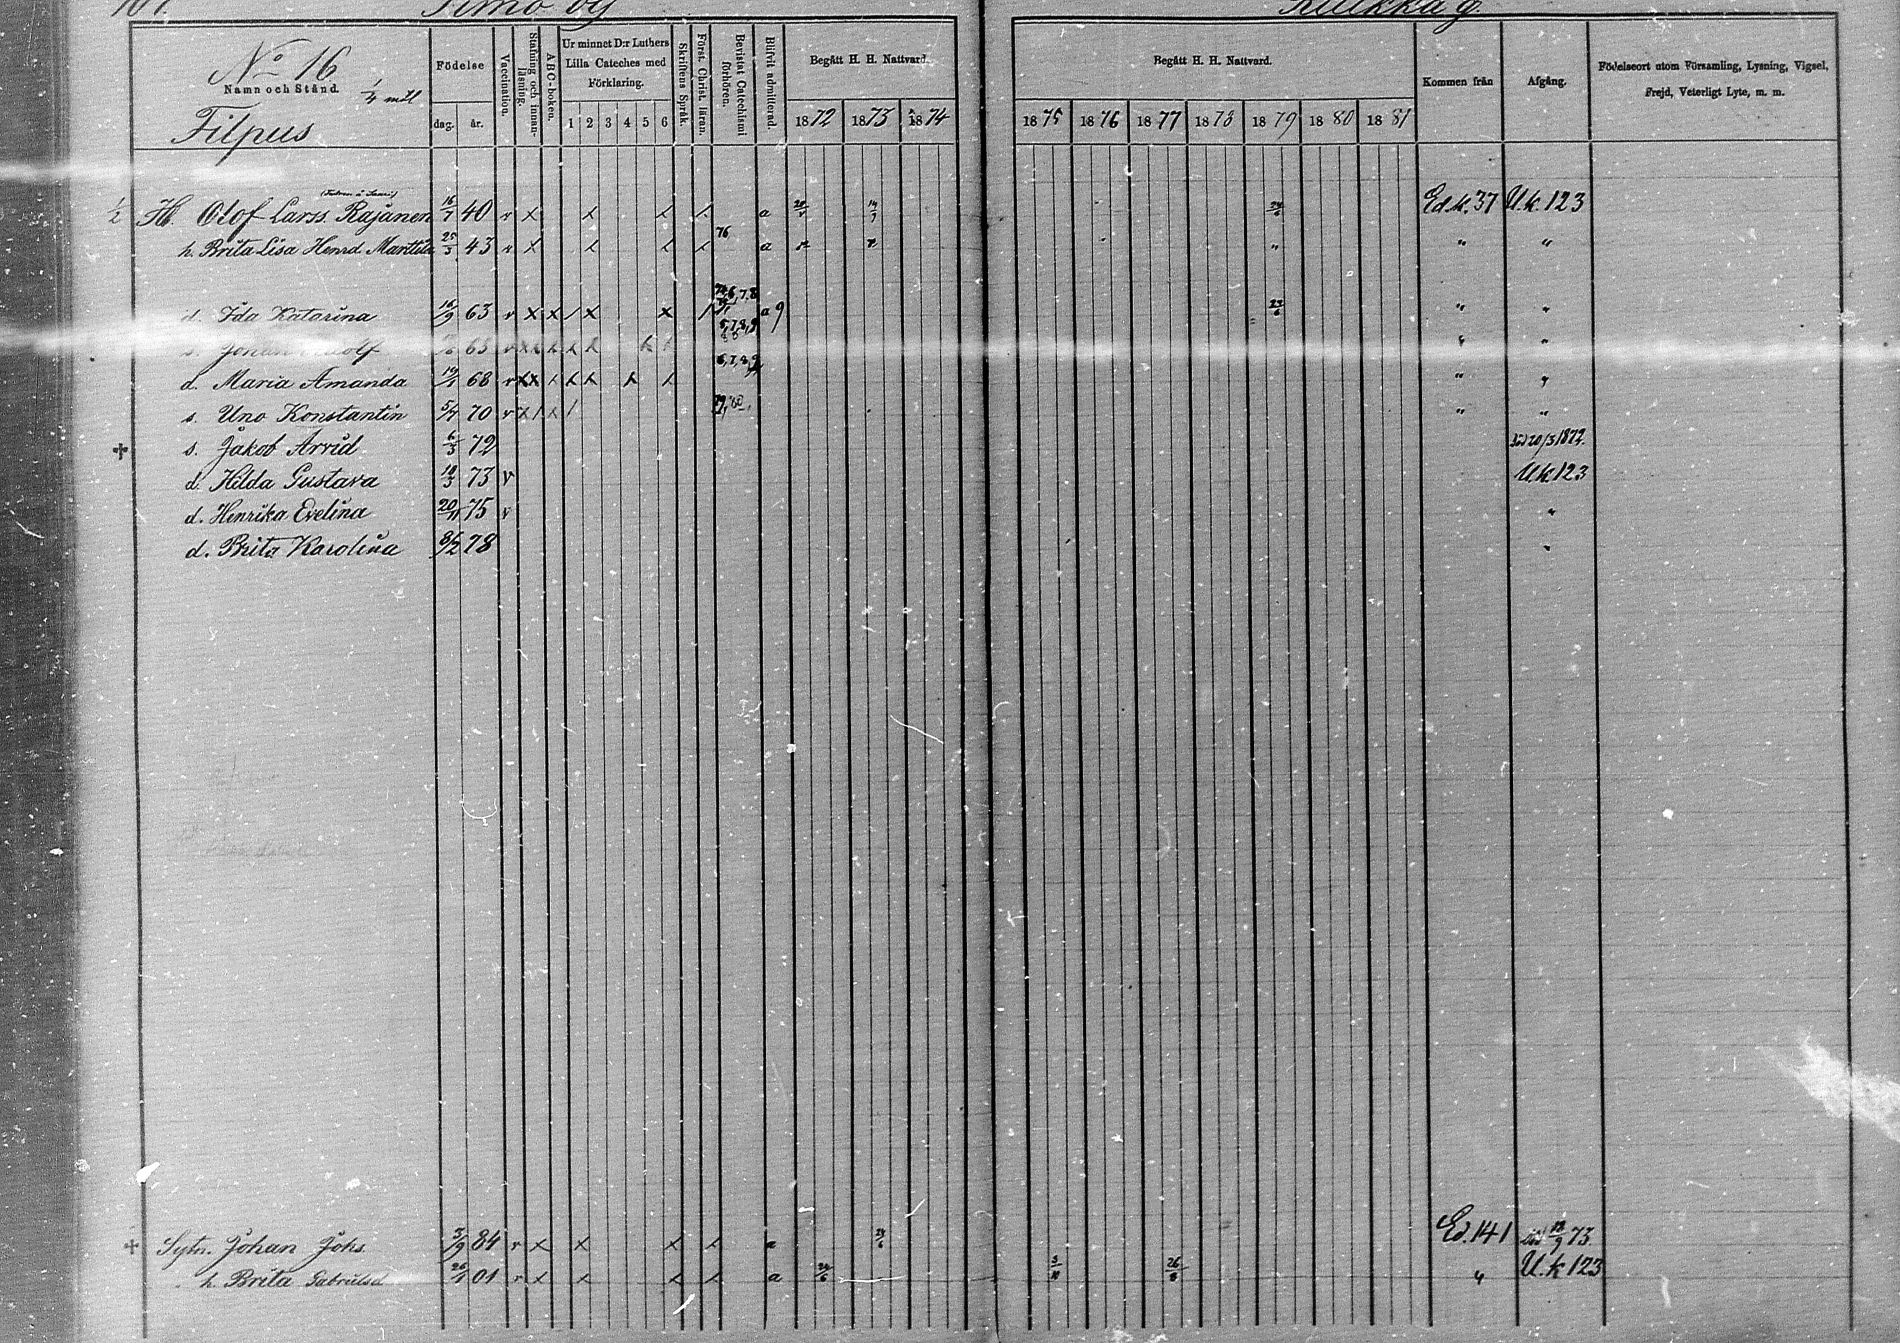 107.
Timo by
Kulkka g
No 16
Namn och Stånd.
1/4 mil
Filpus
Födelse
dag.
år.
Vaccination.
Stafning och innan-
läsning.
ABC-boken.
Ur minnet D:r Luthers
Lilla Cateches med
Förklaring.
1 2 3 4 5 6
Skriftens Språk.
Först. Christ. läran.
Bevistat Catechismi
förhören.
Blifvit admitterad.
Begått H. H. Nattvard.
1872 1873 1874
Begått H. H. Nattvard.
1875 1876 1877 1878 1879 1880 1881
Kommen från
Afgång.
Födelseort utom Församling, Lysning, Vigsel,
Frejd, Veterligt Lyte, m. m.
1/2 H. Olof Larss. Rajanen 16/7 40 v x x x x a 14/7 24/6 Ed.k.37 U.k.123
h. Brita Lisa Henrd Marttila 25/3 43 v x x x x 76 a " " "
d. Ida Katarina 16/9 63 v x x / x x / a 9 23/6 " "
s. Johan Adolf 65 " "
d. Maria Amanda 19/1 68 v x x x x x x x 6,7,8,9 " "
s. Uno Konstantin 5/7 70 v x / x / 80 " "
+ s. Jakob Arvid 6/3 72 död 20/3 1872.
d. Hilda Gustava 19/3 73 v U.k.123
d. Henrika Evelina 20/11 75 v "
d. Brita Karolina 78 "
+ Sytn. Johan Johs. 3/9 84 v x x x x a 24/6 Ed.141 död 18/9 73
h. Brita Gabrielsd 26/1 01 v x x x x a 24/6 26/8 " U.k 123